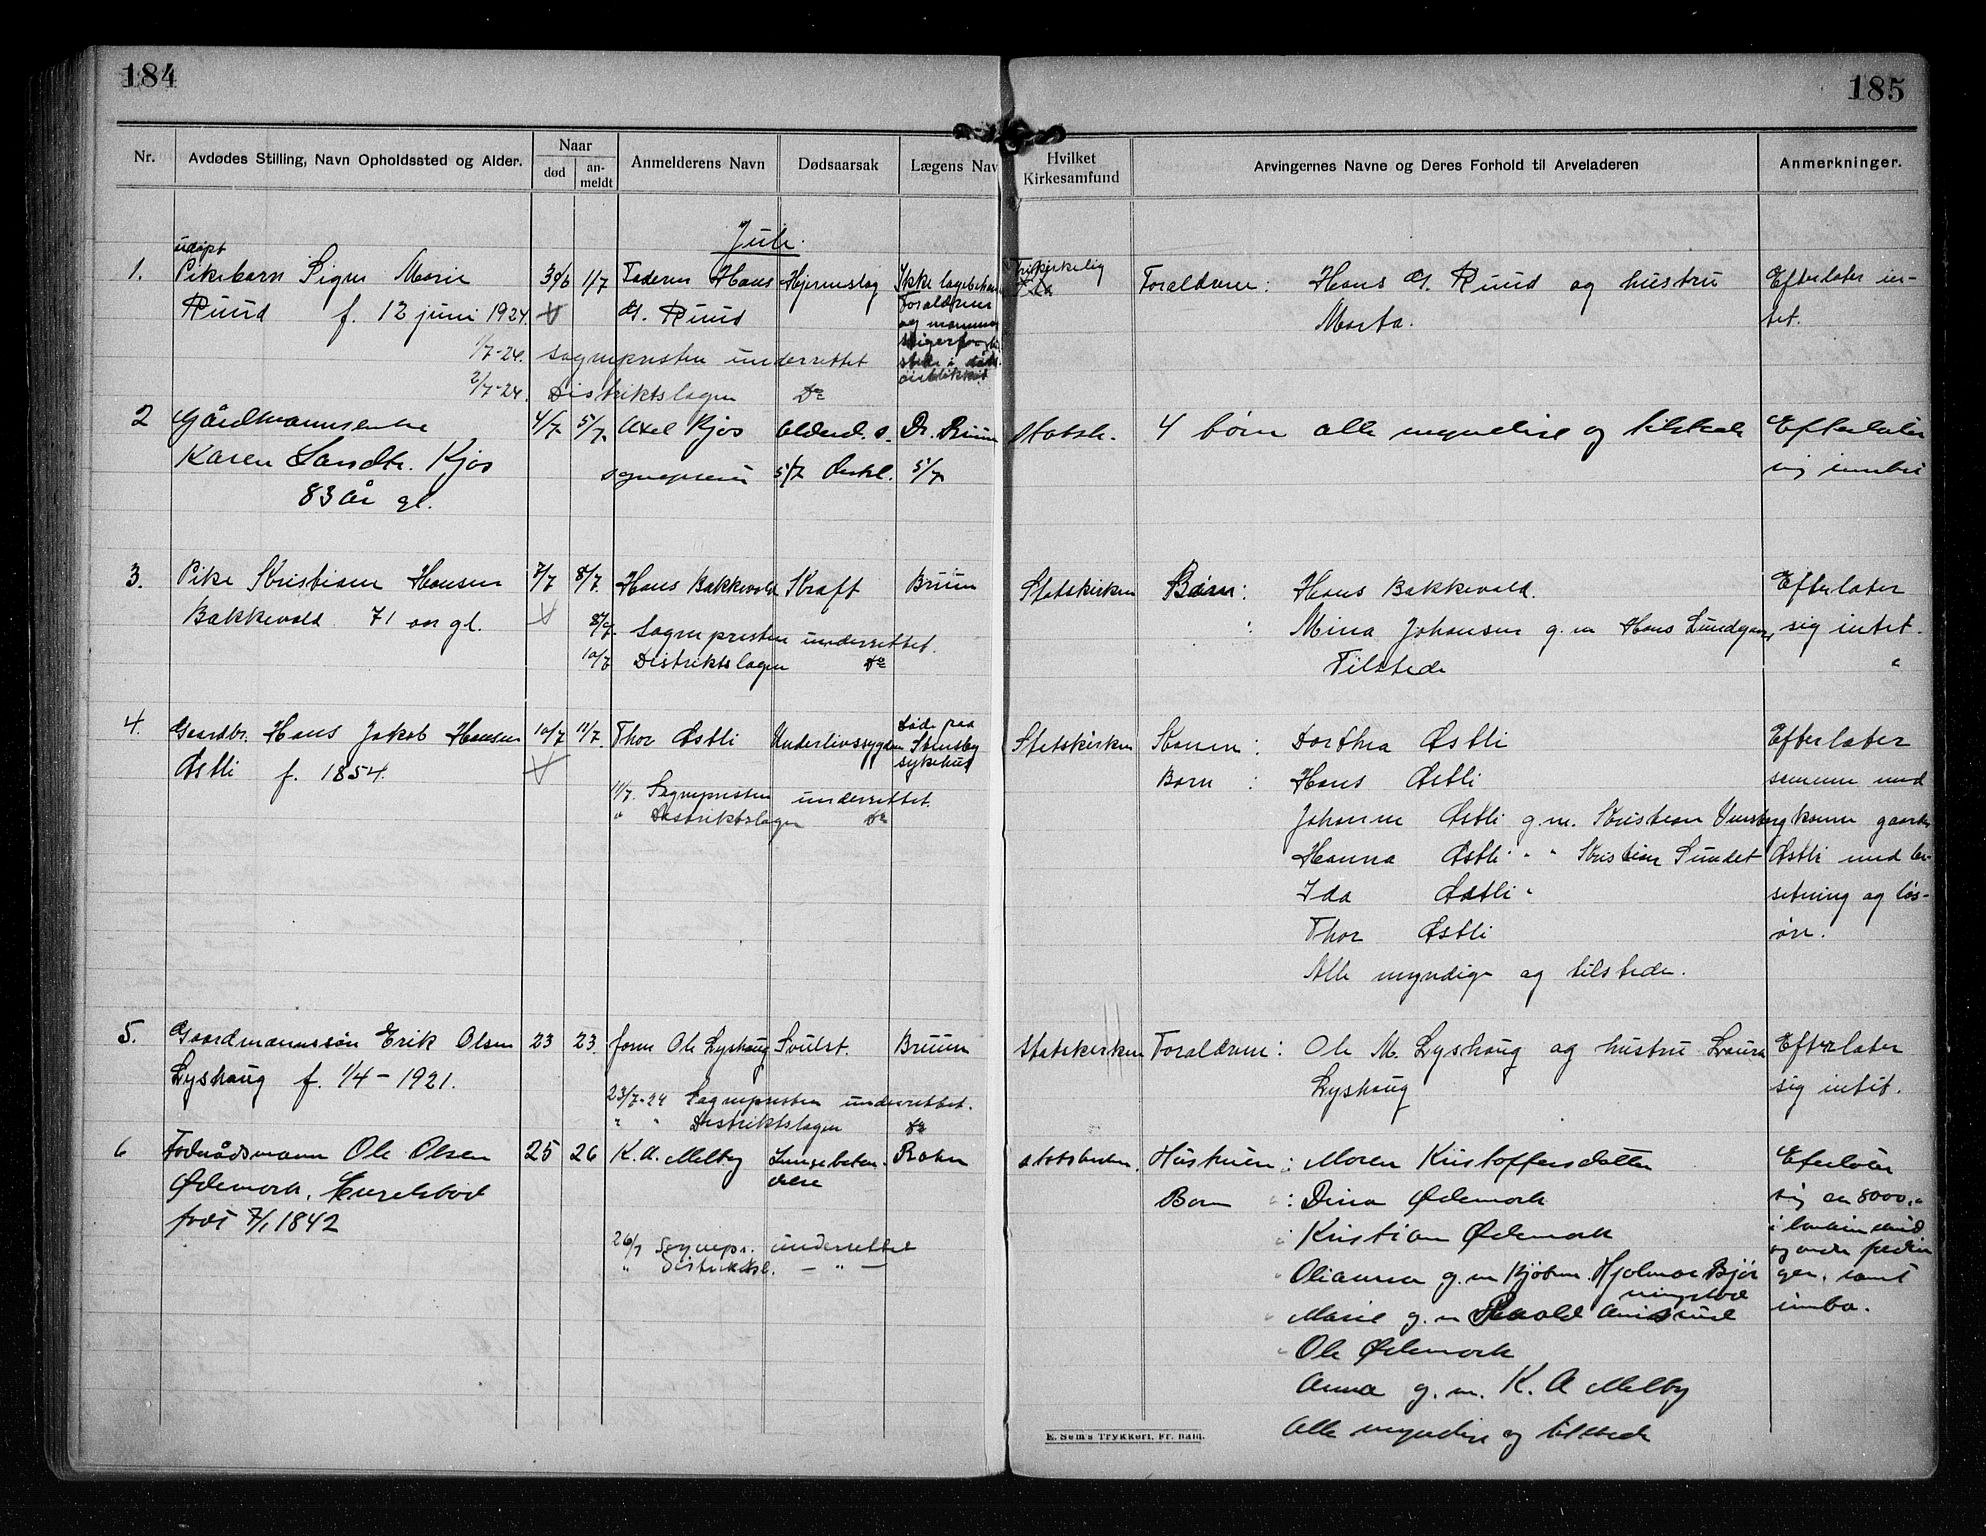 184
185
Nr.
Avdødes Stilling, Navn Opholdssted og Alder.
Naar
død
an-
meldt
Anmelderens Navn
Dødsaarsak
Lægens Nav
Hvilket
Kirkesamfund
Arvingernes Navne og Deres Forhold til Arveladeren
Anmerkninger.
Juli.
udøpt
1. Pikebarn Signe Marie 30/6 1/7 Faderen Hans Hjerneslag Ikke
Ruud f. 12 juni 1924. Ruud
Forældrene
1/7-24. Sognepresten underrettet
2/7-24. Distriktslægen do
Frikirkelig
Forældrene: Hans Ruud og hustru
Marta.
Efterlater in-
tet.
2 Gårdmannsenke 4/7 5/7 Axel Kjos Alderd. s. Dr. Bruun
Karen Kjos
83 år gl.
5/7 5/7
Statsk. 4 børn alle myndige og tilstede
Efterlater
sig innbo
3. Pike Kristiane Hansen 7/7 8/7. Hans Bakkevold Kræft Bruun
Bakkevold 71 aar gl.
8/7. Sognepresten underrettet.
10/7 Distriktslægen do
Statskirken Børn: Hans Bakkevold.
Mina Johansen g.m Hans
Tilstede
Efterlater
sig intet.
4. Gaardbr. Hans Jakob Hansen 10/7 11/7. Thor Østli Underlivssygdom Døde paa
Stensby
sykehus
Østli f. 1854.
11/7. Sognepresten underrettet.
" Distriktslægen do
Statskirken Konen: Dorthea Østli
Børn: Hans Østli
Johanne Østli g.m. Kristian
Hanna Østli " " Kristian Sundet
Ida Østli "
Thor Østli
Alle myndige og tilstede.
Efterlater
sammen med
konen gaarden
Østli med be-
setning og løs-
øre.
5. Gaardmannssøn Erik Olsen 23 23. faren Ole Lyshaug Svulst. Bruun
Lyshaug f. 1/4 - 1921.
23/7-24 Sognepresten underrettet.
" " Distriktslægen do
Statskirken Forældrene: Ole M. Lyshaug og hustru Laura
Lyshaug
Efterlater
sig intet.
6 Ole Olsen 25 26 K. A. Melby Lungebeten-
delse
Ødemark,
født 7/1 1842
26/7 Sognepr. underrettet
" Distriktsl. — " —
Statskirken. Hustruen: Maren Kristoffersdatter
Børn ": Dina Ødemark
" Kristian Ødemark
" Olianna g.m Kjøbm. Hjalmar
" Marie g.m
" Ole Ødemark
Anna g.m. K. A Melby
Alle myndige og tilstede
Efterlater
sig ca 8000,-
samt
innbo.
E. Sem's Trykkeri, Fr.hald.